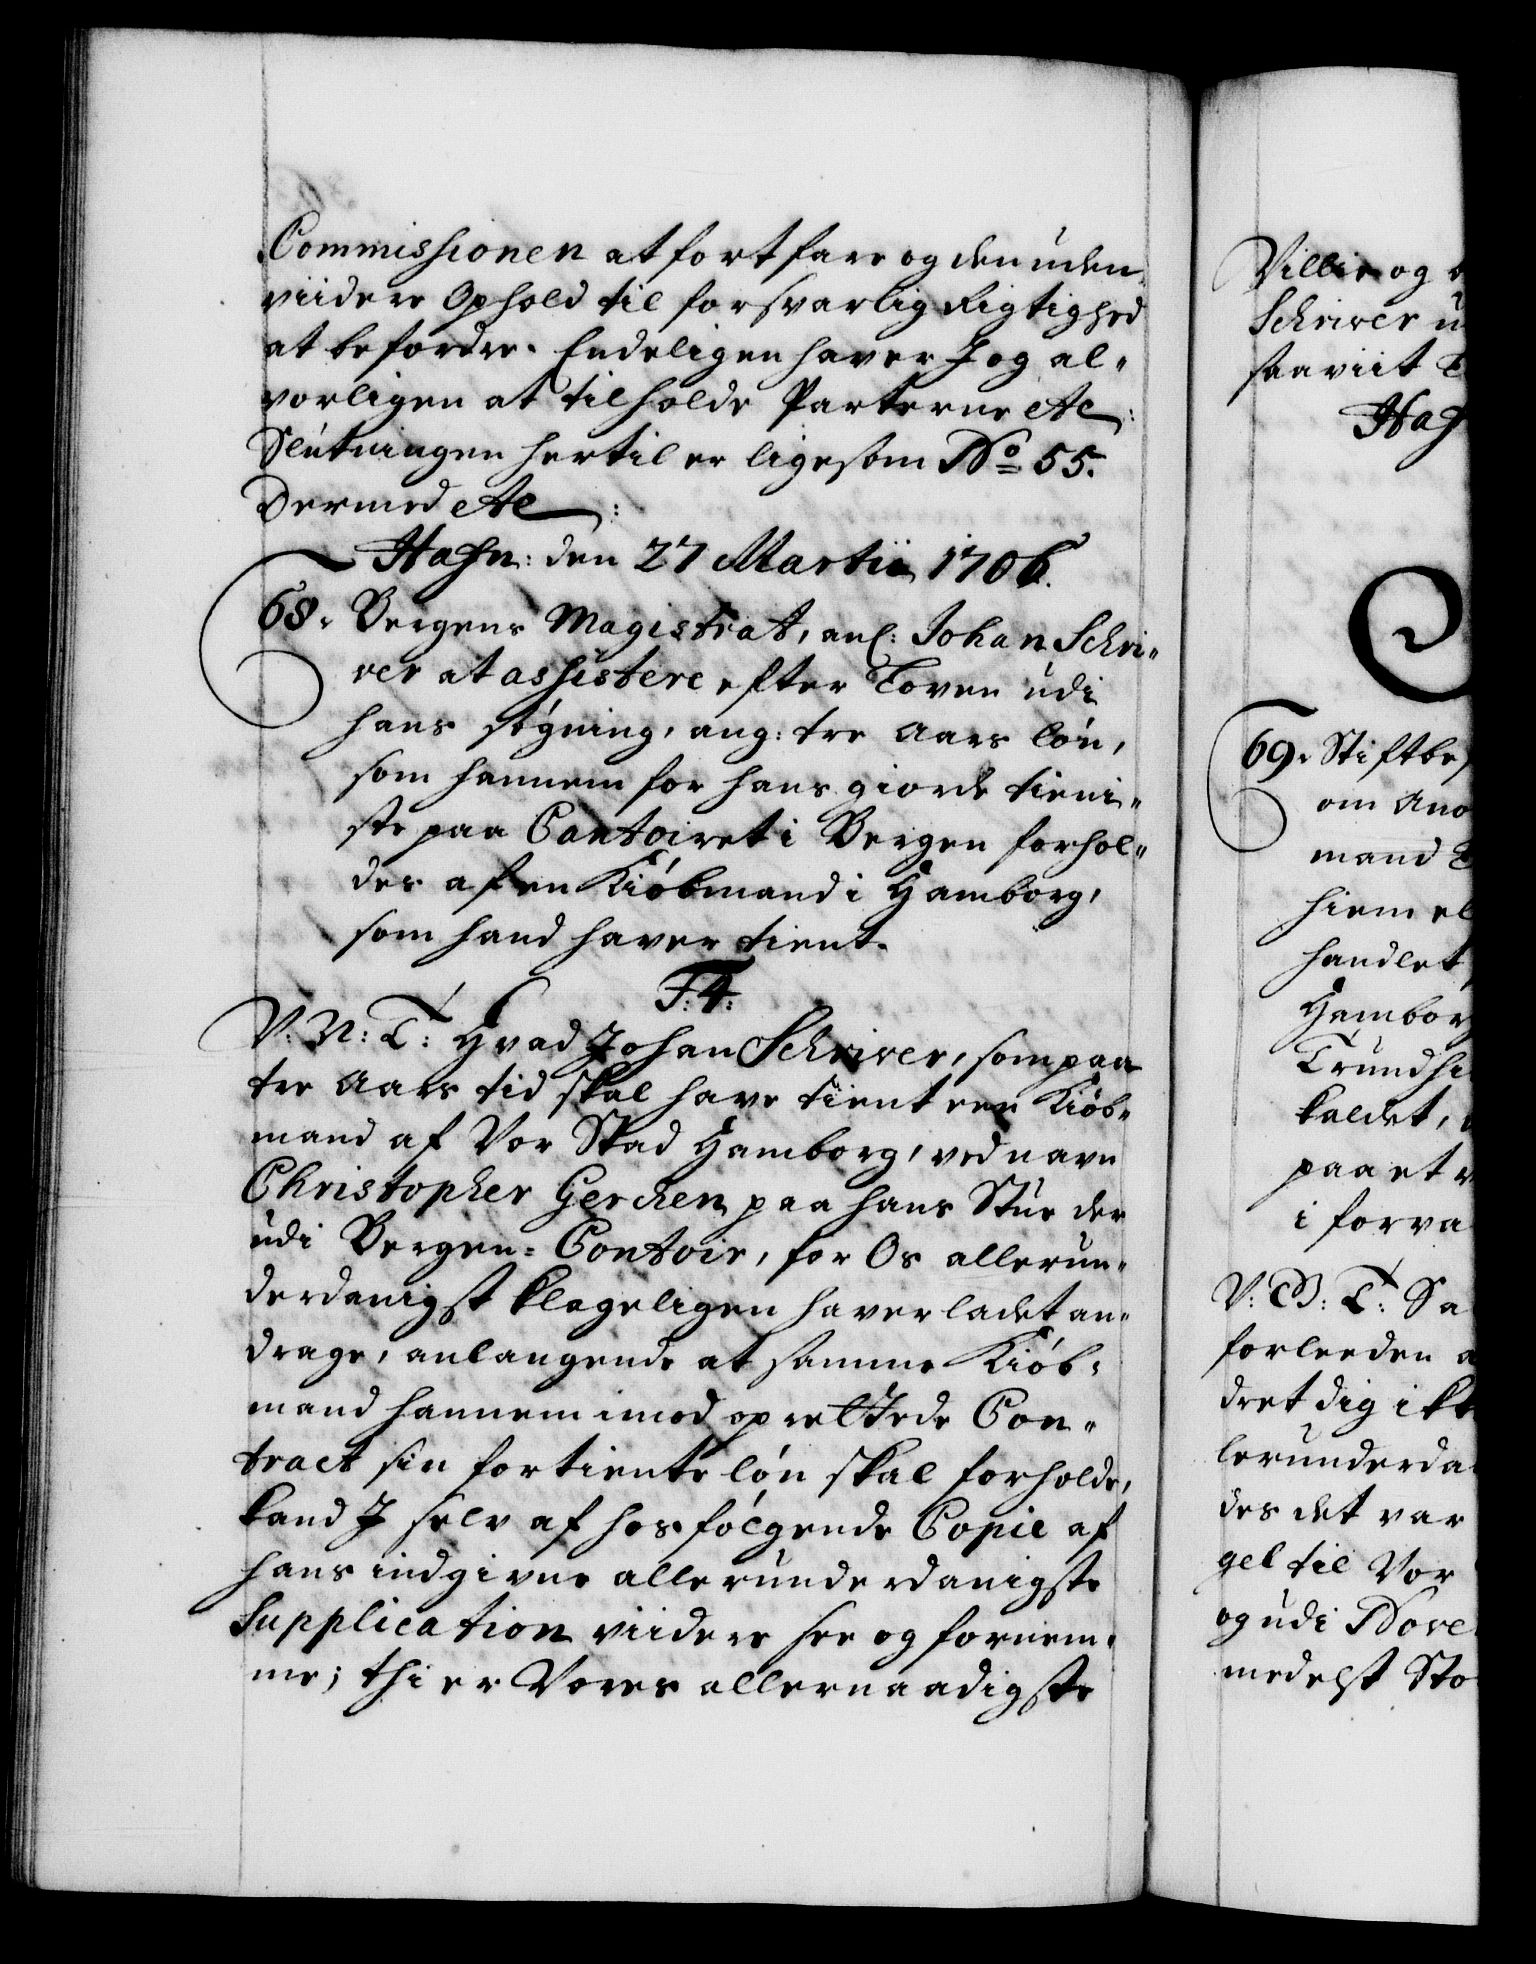 Commissionen at fortfare og den uden
viidere Ophold til forsvarlig Rigtighed
at befordre. Endeligen haver I og al„
vorligen at tilholde Parterne etc:
Slutningen hertil er ligesom No 55.
Dermed etc:
Hafn: den 27 Martii 1706.
68. Bergens Magistrat, anl: Johan Schri„
ver at assistere efter Loven udi
hans søgning, ang: tre Aars løn,
som hannem for hans giorde tieni„
ste paa Contoiret i Bergen forhol„
des af en Kiöbmand i Hamborg,
som hand haver tient.
F: 4:
V: N: T: Hvad Johan Schriver, som paa
tre Aars tid skal have tient een Kiöb„
mand af Vor Stad Hamborg, ved navn
Christopher Gerchen paa hans Stue der
udi Bergen= Contoir, for Os allerun„
derdanigst klageligen haver ladet an„
drage, anlangende at samme Kiöb„
mand hannem imod oprettede Con„
tract sin fortiente løn skal forholde,
kand I selv af hosfölgende Copie af
hans indgivne allerunderdanigste
Supplication viidere see og fornem„
me; thi er Vores allernaadigste
Villie og
Schriver u
saaviit
Haf
69. Stiftbe
om And
mand
hiem el
handlet
Hambor
Trundhi
kaldet,
paa et
i forva
V: G: T: Sa
forleeden a
dret dig ikk
lerunderda
des det var
gel til Vor
og udi Nove
medelst Sto